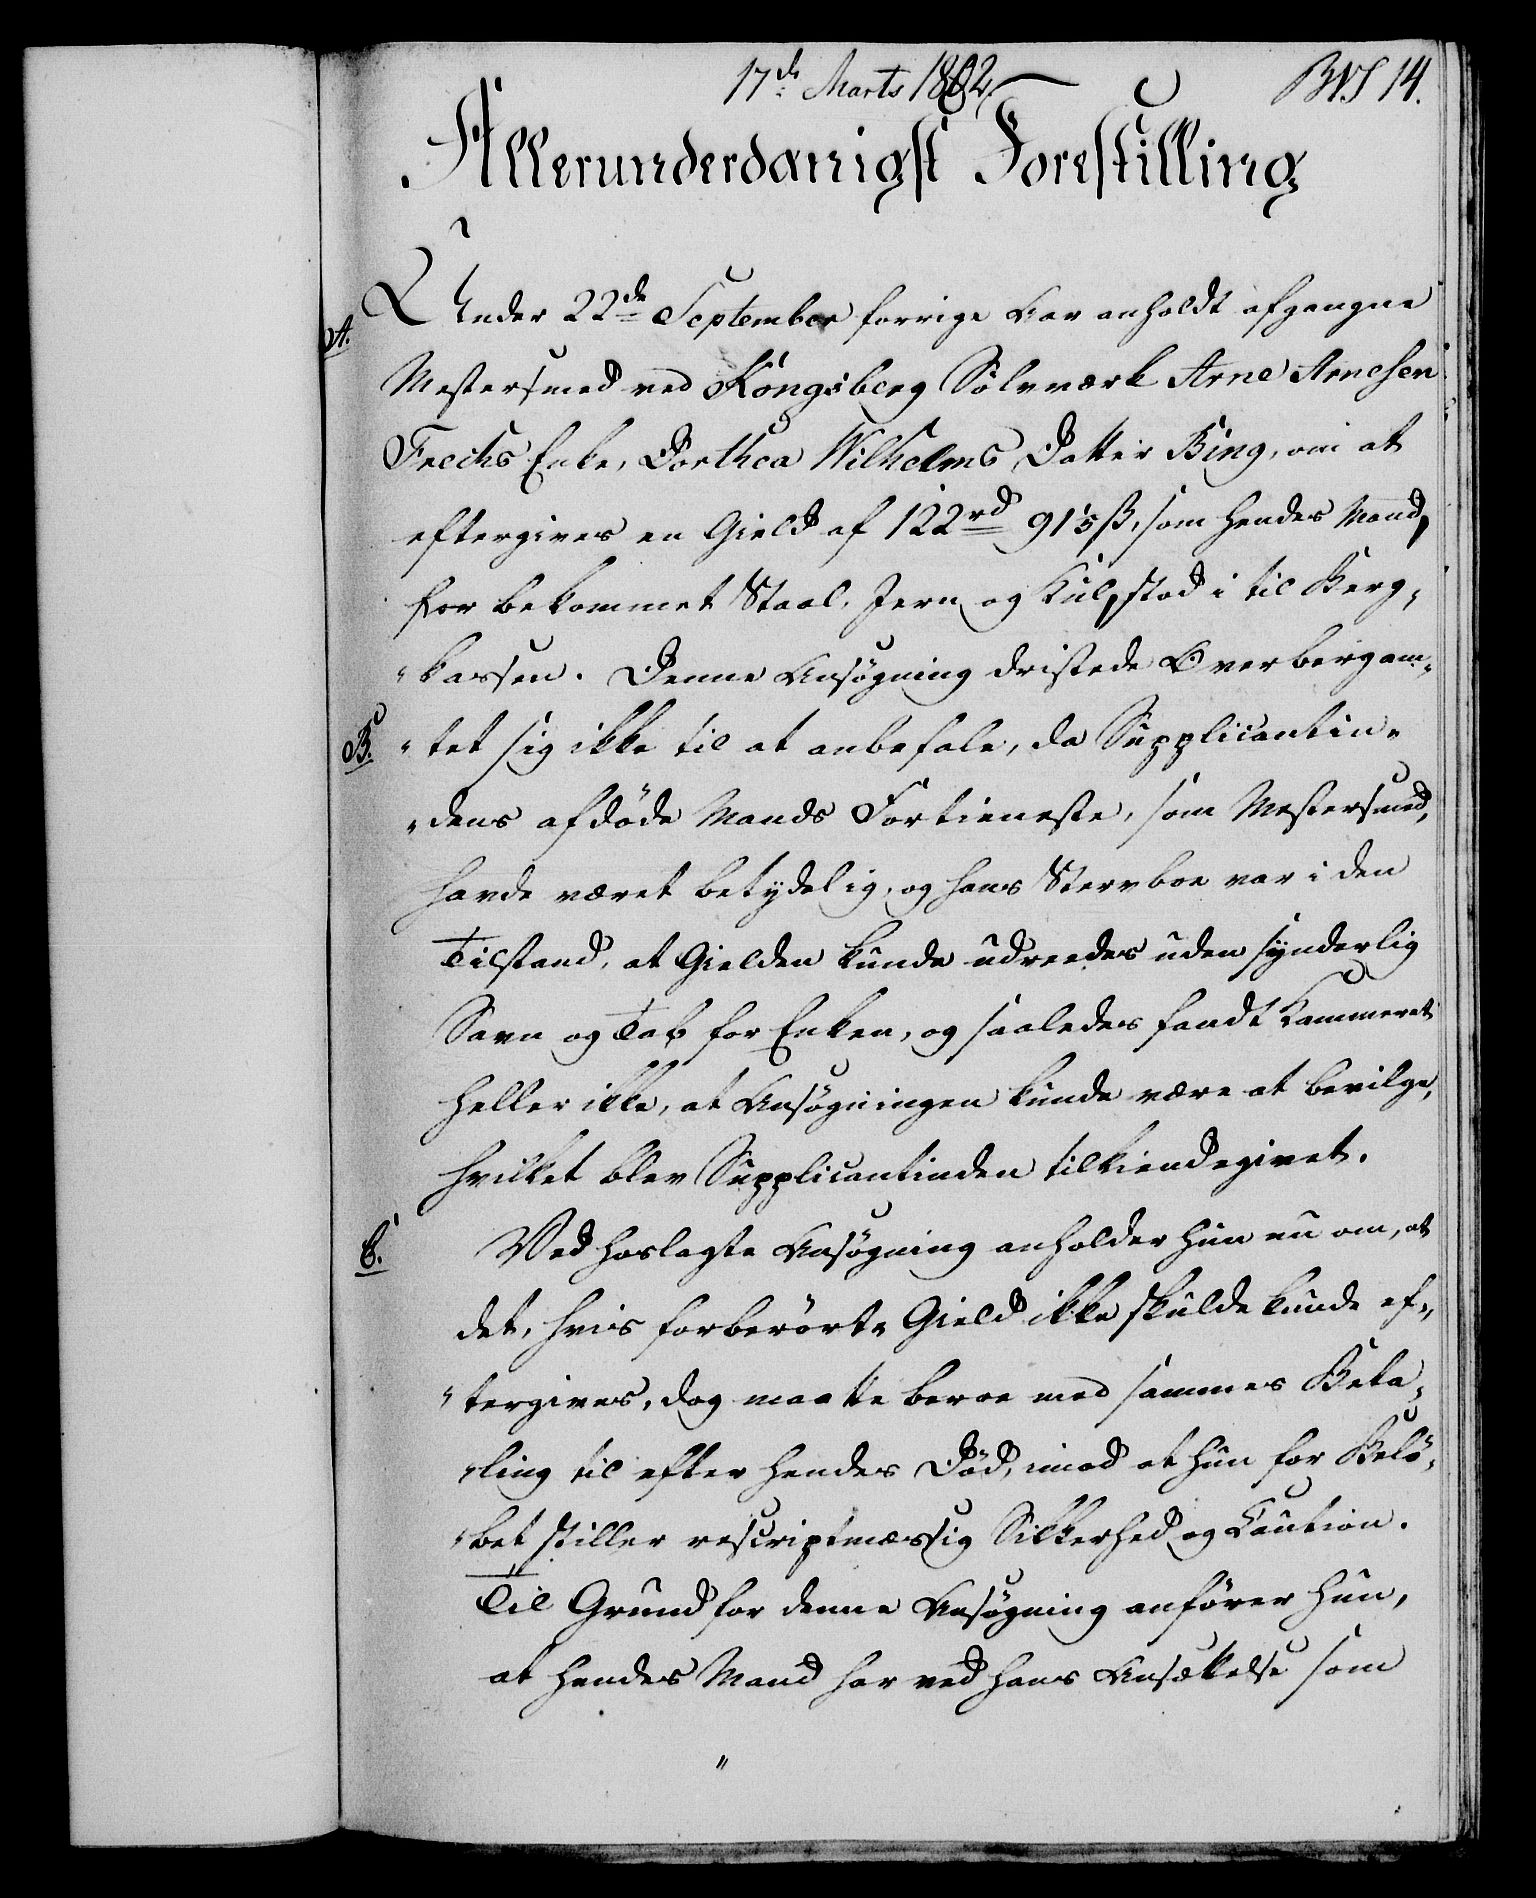 17de Marts 1802.
14.
Allerunderdanigst Forestilling
A.
Under 22de September forrige Aar anholdt afgangne
Mestersmed ved Kongsberg Sølvværk Arne Arnesen
Enke, Dorthea Wilhelms Datter Bing, om at
eftergives en Gield af 122rd 91 ß, som hendes Mand,
for bekommet Staal, Jern og Kul, stod i til Berg-
"kassen. Denne Ansøgning dristede Overbergam-
B.
"tet sig ikke til at anbefale, da Supplicantin-
"dens afdøde Mands Fortieneste, som Mestersmed,
havde været betydelig, og hans Stervboe var i den
Tilstand, at Gielden kunde udreedes uden synderlig
Savn og Tab for Enken, og saaledes fandt Kammeret
heller ikke, at Ansøgningen kunde være at bevilge,
hvilket blev Supplicantinden tilkiendegivet.
C.
Ved hoslagte Ansøgning anholder hun nu om, at
det, hvis forberørte Gield ikke skulde kunde ef-
"tergives, dog maatte beroe med sammes Beta-
"ling til efter hendes Død, imod at hun for Belø-
"bet stiller rescriptmæssig Sikkerhed og Caution.
Til Grund for denne Ansøgning anfører hun,
at hendes Mand har ved hans Ansættelse som